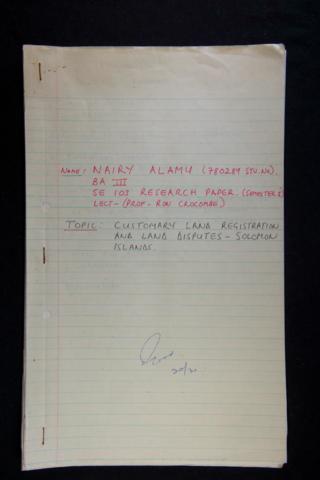 NAME: NAIRY ALAMU (780289 STU.NO).
BA III
SE 103 RESEARCH PAPER. (SEMESTER I)
LECT- (PROF- RON CROCOMBE)
TOPIC: CUSTOMARY LAND REGISTRATION
AND LAND DISPUTES - SOLOMON
ISLANDS.